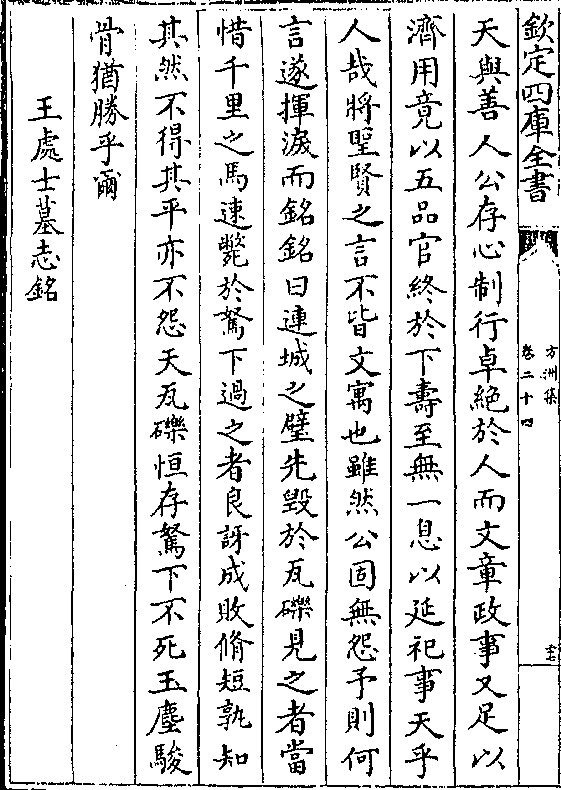 欽定四庫全書
方洲集
卷二十四
天與善人公存心制行卓絶於人而文章政事又足以
濟用竟以五品官終於下壽至無一息以延祀事天乎
人哉將聖賢之言不皆文寓也雖然公固無怨予則何
言遂揮淚而銘銘曰連城之璧先毁於瓦礫見之者當
惜千里之馬速斃於駑下過之者良訝成敗脩短孰知
其然不得其平亦不怨天瓦礫恒存駑下不死玉塵駿
骨猶勝乎爾
王處士墓志銘